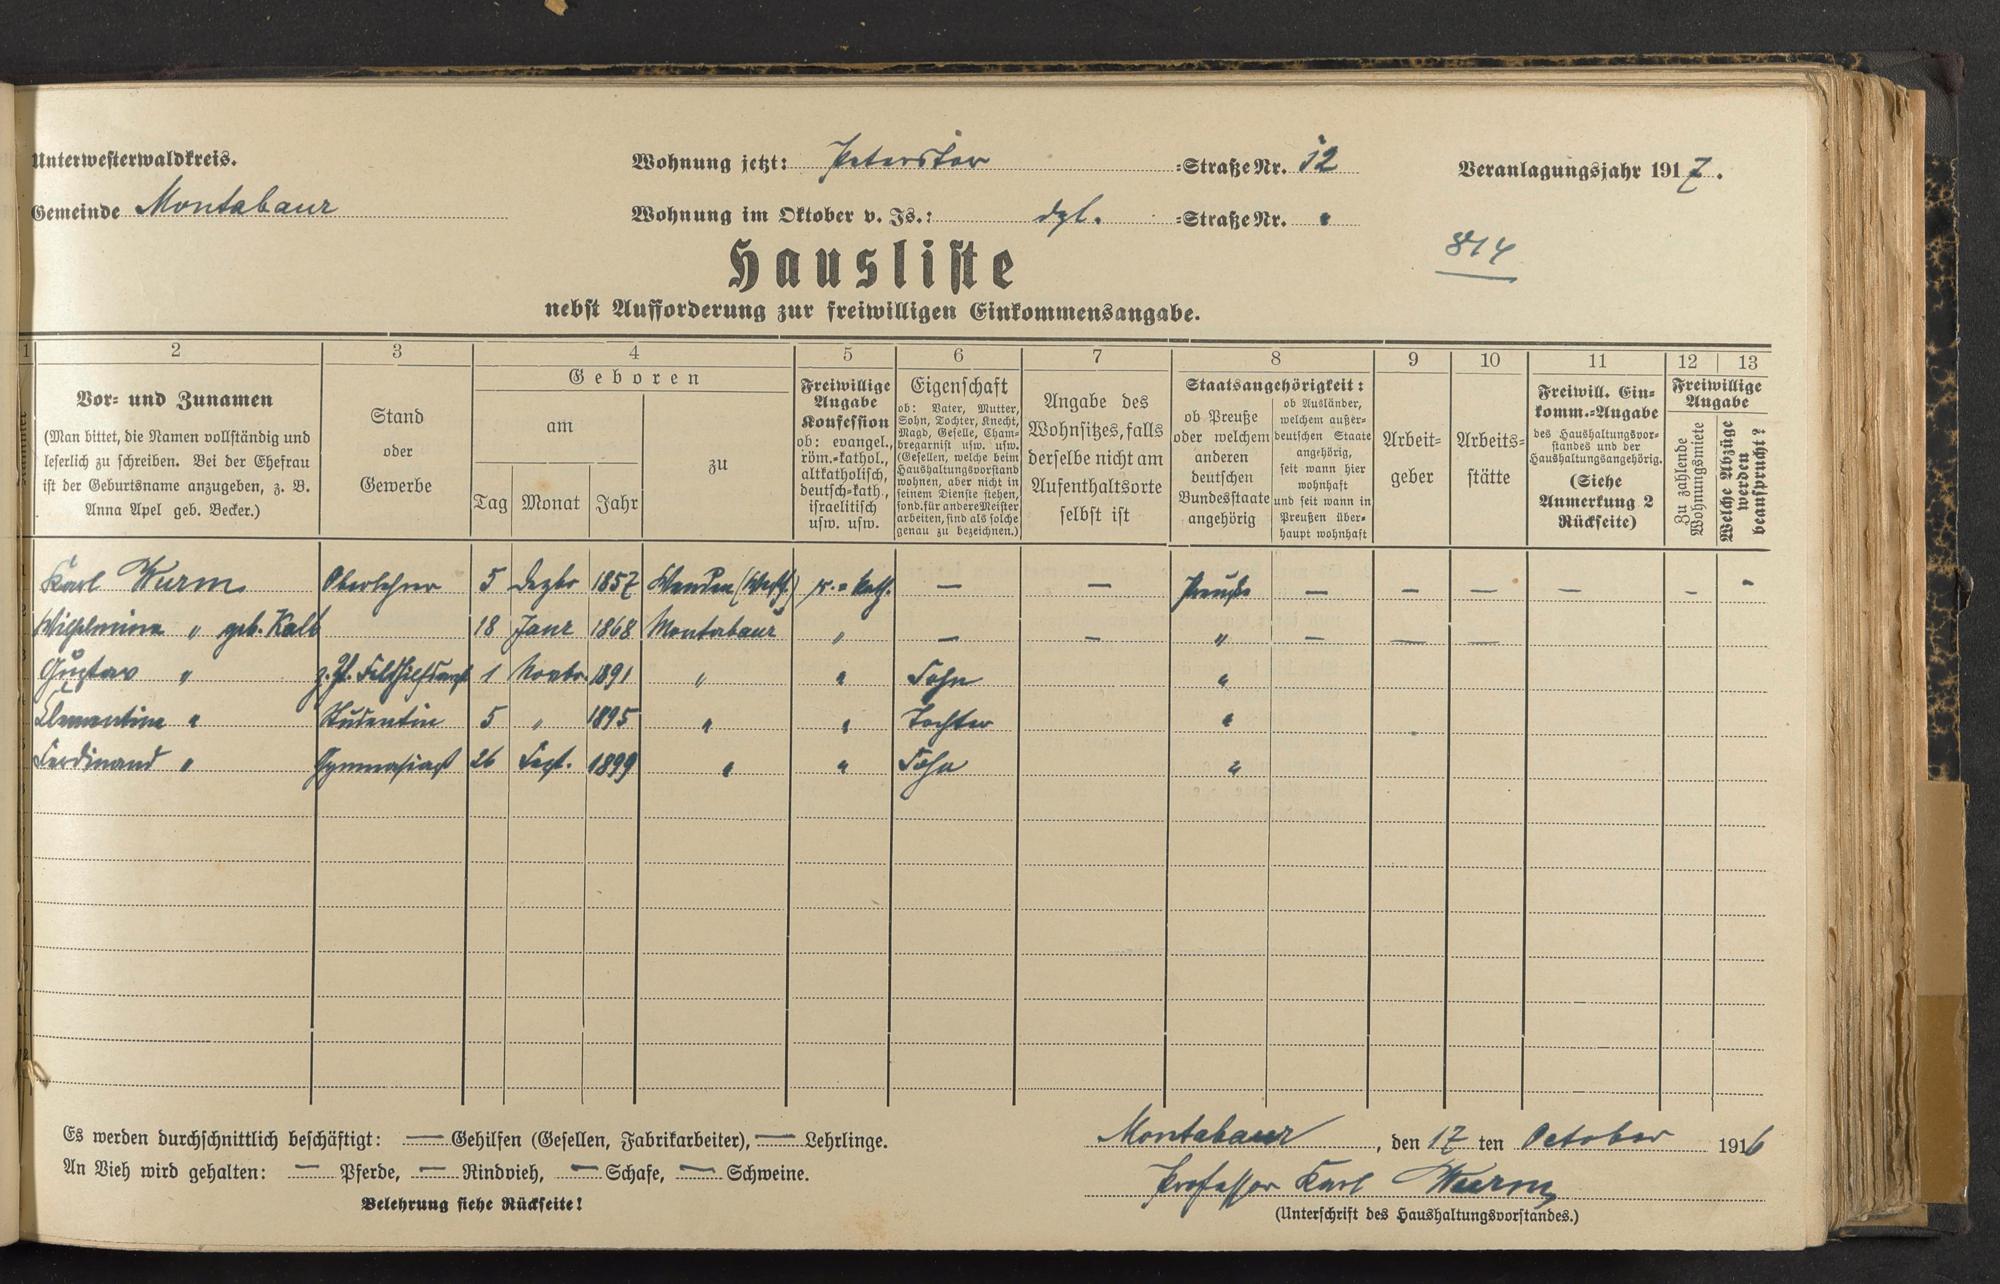 Unterwesterwaldkreis.
Wohnung jetzt: Peterstor =Straße Nr. 12
Veranlagungsjahr 1917.
Gemeinde Montabaur
Wohnung im Oktober v. Js.: dgl. =Straße Nr. "
814
Hausliste
nebst Aufforderung zur freiwilligen Einkommensangabe.
1 2 3 4 5 6 7 8 9 10 11 12 13
Vor- und Zunamen
(Man bittet, die Namen vollständig und
leserlich zu schreiben. Bei der Ehefrau
ist der Geburtsname anzugeben, z. B.
Anna Apel geb. Becker.)
Stand
oder
Gewerbe
Geboren
am
Tag Monat Jahr
zu
Freiwillige
Angabe
Konfession
ob: evangel.,
röm.-kathol.,
altkatholisch,
deutsch-kath.,
israelitisch
usw. usw.
Eigenschaft
ob: Vater, Mutter,
Sohn, Tochter, Knecht,
Magd, Geselle, Cham-
bregarnist usw. usw.
(Gesellen, welche beim
Haushaltungsvorstand
wohnen, aber nicht in
seinem Dienste stehen,
sond. für andere Meister
arbeiten, sind als solche
genau zu bezeichnen.)
Angabe des
Wohnsitzes, falls
derselbe nicht am
Aufenthaltsorte
selbst ist
Staatsangehörigkeit:
ob Preuße
oder welchem
anderen
deutschen
Bundesstaate
angehörig
ob Ausländer,
welchem außer-
deutschen Staate
angehörig,
seit wann hier
wohnhaft
und seit wann in
Preußen über-
haupt wohnhaft
Arbeit-
geber
Arbeits-
stätte
Freiwill. Ein-
komm.-Angabe
des Haushaltungsvor-
standes und der
Haushaltungsangehörig.
(Siehe
Anmerkung 2
Rückseite)
Freiwillige
Angabe
Zu zahlende
Wohnungsmiete
Welche Abzüge
werden
beansprucht?
Karl Wurm Oberlehrer 5 Dezbr 1857 Wenden (Westf.) r.=kath. — — Preuße — — — — - -
Wilhelmine " geb. Kalb 18 Janr 1868 Montabaur " — — " — — —
Gustav " z. Zt. Feldhilfsarzt 1 Novbr. 1891 " " Sohn "
Clementine " Studentin 5 " 1895 " " Tochter "
Ferdinand " Gymnasiast 26 Sept. 1899 " " Sohn "
Es werden durchschnittlich beschäftigt: — Gehilfen (Gesellen, Fabrikarbeiter), — Lehrlinge.
An Vieh wird gehalten: — Pferde, — Rindvieh, — Schafe, — Schweine.
Belehrung siehe Rückseite!
Montabaur, den 17 ten October 1916
Professor Karl Wurm
(Unterschrift des Haushaltungsvorstandes.)